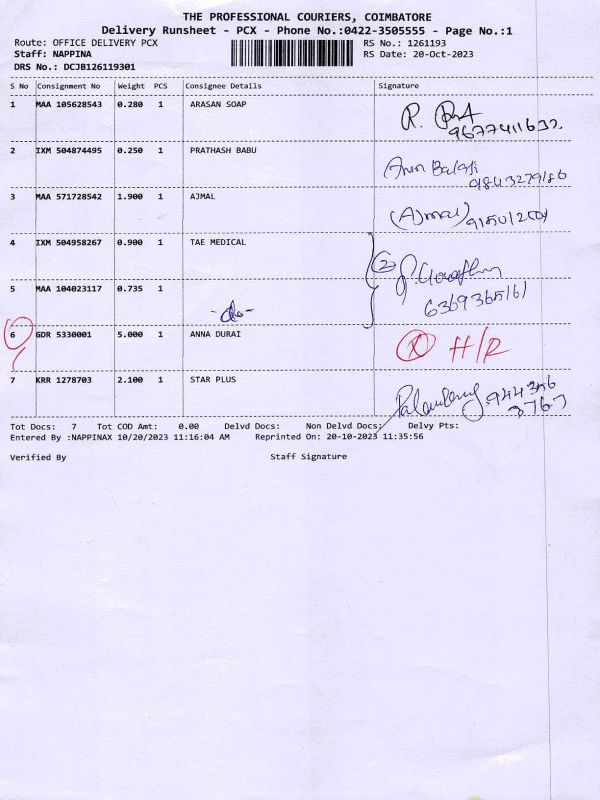 THE PROFESSIONAL COURIERS, COIMBATORE
Delivery Runsheet - PCX - Phone No.:0422-3505555 - Page No.:1
Route: OFFICE DELIVERY PCX RS No.: 1261193
Staff: NAPPINA RS Date: 20-Oct-2023
DRS No.: DCJB126119301
S No Consignment No Weight PCS Consignee Details Signature
1 MAA 105628543 0.280 1 ARASAN SOAP R.
9677411632
2 IXM 504874495 0.250 1 PRATHASH BABU Arun Balaji
9843279186
3 MAA 571728542 1.900 1 AJMAL (Ajmal)
4 IXM 504958267 0.900 1 TAE MEDICAL 2
5 MAA 104023117 0.735 1 -do- 6369365161
6 GDR 5330001 5.000 1 ANNA DURAI X H/R
7 KRR 1278703 2.100 1 STAR PLUS 944356
3767
Tot Docs: 7 Tot COD Amt: 0.00 Delvd Docs: Non Delvd Docs: Delvy Pts:
Entered By :NAPPINAX 10/20/2023 11:16:04 AM Reprinted On: 20-10-2023 11:35:56
Verified By Staff Signature